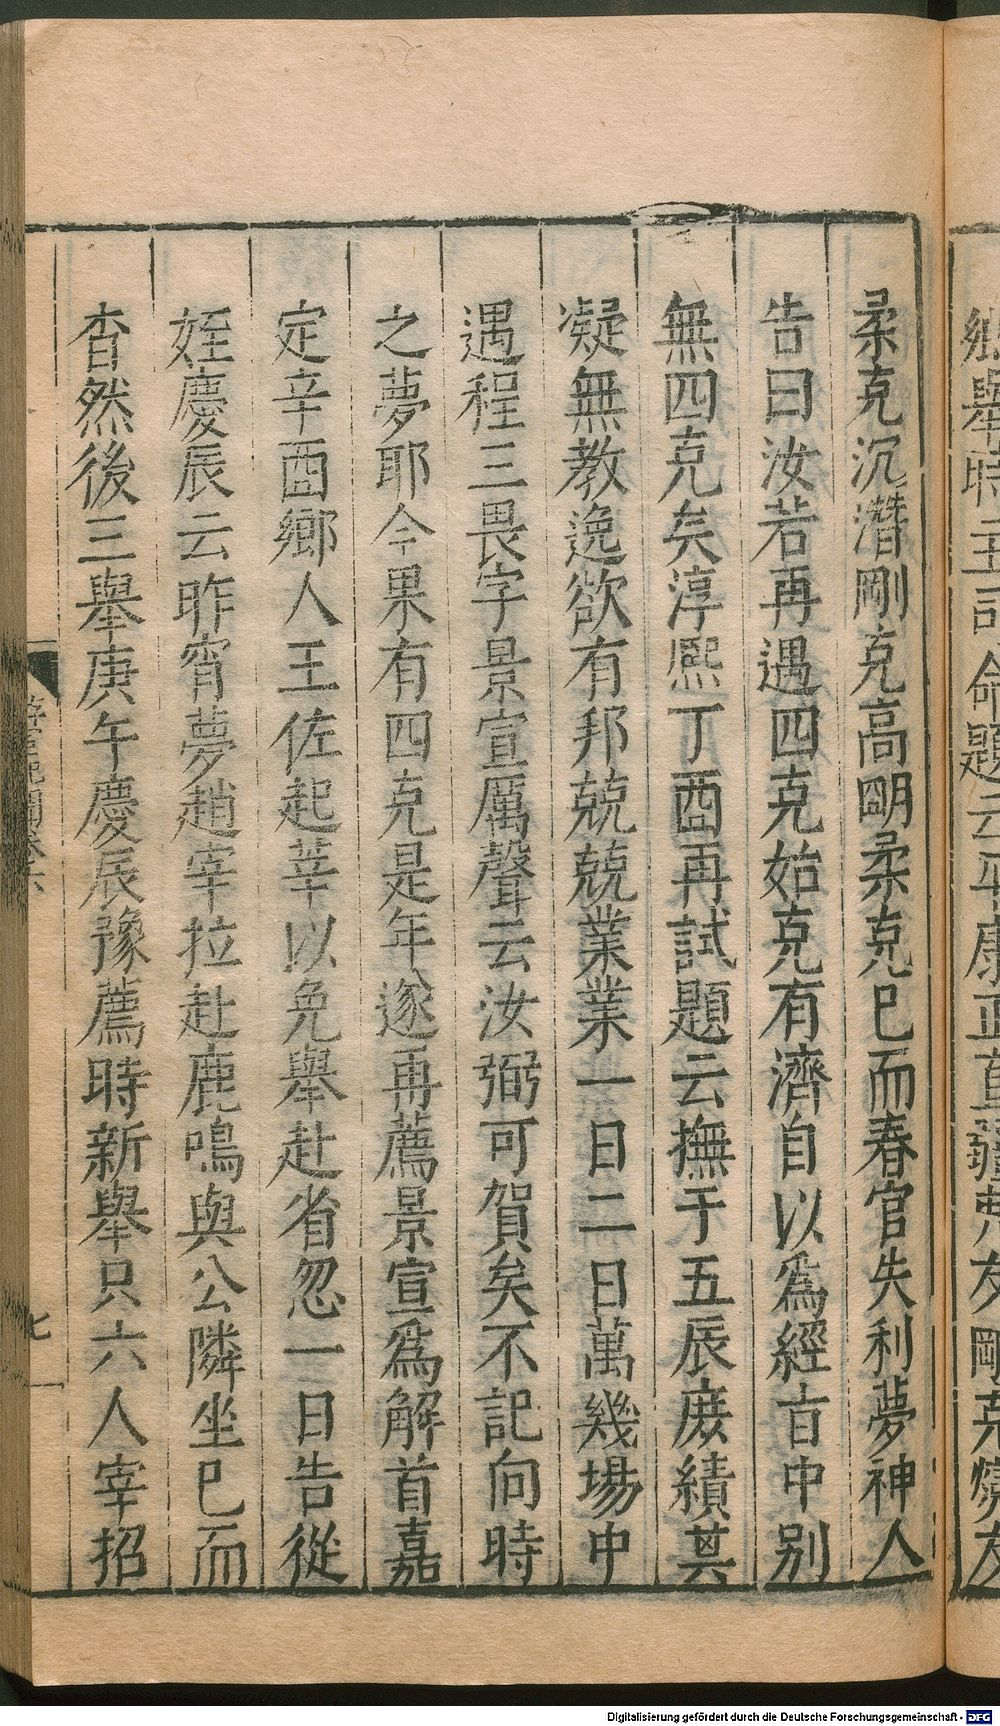 鄉舉時主司命題云平康正直彊弗友剛克燮友
柔克沉潛剛克高明柔克已而春官失利夢神人
告曰汝若再遇四克始克有濟自以爲經盲中别
無四克矣淳熙丁酉再試題云撫于五辰庶績其
凝無教逸欲有邦兢兢業業一日二日萬幾場中
遇程三畏字景宣厲聲云汝弼可賀矣不記向時
之夢耶今果有四克是年遂再薦景宣爲解首嘉
定辛酉鄉人王佐起莘以免舉赴省忽一日告從
姪慶辰云昨宵夢趙宰拉赴鹿鳴與公隣坐已而
杳然後三舉庚午慶辰豫薦時新舉只六人宰招
七
Digitalisierung gefördert durch die Deutsche Forschungsgemeinschaft - DFG